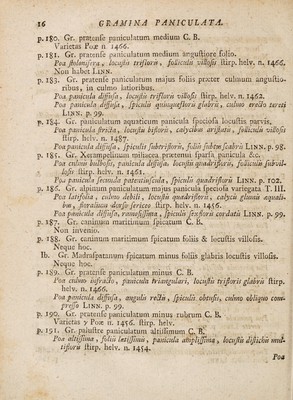 16 GRAMINA PANICULATA.
p. 180. Gr. pratense paniculatum medium C. B.
Varietas Poæ n 1466.
p. 181. Gr. pratense paniculatum medium angustiore folio.
Poa stolonifera, locustis trifloris, folliculis villosis stirp. helv. n. 1466.
Non habet LINN.
p. 183. Gr. pratense paniculatum majus foliis præter culmum angustio-
ribus, in culmo latioribus.
Poa panicula diffusa, locustis trifloris villosis stirp. helv. n. 1462.
Poa panicula diffusa, spiculis quinquefloris glabris, culmo erecto tereti
LINN. p. 99.
p. 184. Gr. paniculatum aquaticum panicula speciosa locustis parvis.
Poa panicula stricta, locustis bifloris, calycibus aristatis, folliculis villosis
stirp. helv. n. 1487.
Poa panicula diffusa, spiculis subtrifloris, foliis subtus scabris LINN. p. 98.
p. 185. Gr. Xerampelinum miliacea prætenui sparsa panicula &c.
Poa culmo bulboso, panicula diffusa, locustis quadrifloris, folliculis subvil-
losis stirp. helv. n. 1461.
Poa panicula secunda patentiuscula, spiculis quadrifloris LINN. p. 102.
p. 186. Gr. alpinum paniculatum majus panicula speciosa variegata T. III.
Poa latifolia, culmo debili, locustis quadrifloris, calycis glumis æquali-
bus, floralibus dorso sericeo stirp. helv. n. 1456.
Poa panicula diffusa, ramosissima, spiculis sexfloris cordatis LINN. p. 99.
p. 187. Gr. caninum maritimum spicatum C. B.
Non invenio.
p. 188. Gr. caninum maritimum spicatum foliis & locustis villosis.
Neque hoc.
Ib. Gr. Madraspatanum spicatum minus foliis glabris locustis villosis.
Neque hoc.
p. 189. Gr. pratense paniculatum minus C. B.
Poa culmo infracto, panicula triangulari, locustis trifloris glabris stirp.
helv. n. 1466.
Poa panicula diffusa, angulis rectis, spiculis obtusis, culmo obliquo com-
presso LINN. p. 99.
p. 190. Gr. pratense paniculatum minus rubrum C. B.
Varietas γ Poæ n. 1456. stirp. helv.
p. 191. Gr. palustre paniculatum altissimum C. B.
Poa altissima, foliis latissimis, panicula amplissima, locustis distichis mul-
tifloris stirp. helv. n. 1454.
Poa